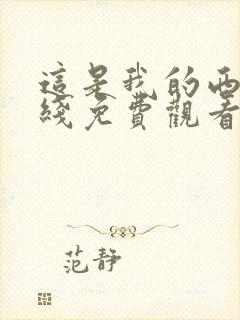 這是我的西
綫免費觀看
范静